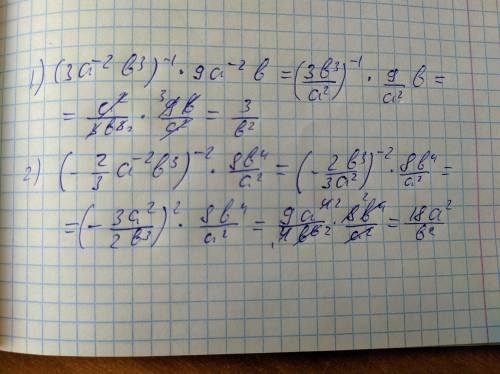 1) (3a⁻² b³)⁻¹ · 9a⁻² b = (3b³/a²)⁻¹ · 9/a² b =
= a²/3b³₂ · ³9b/a² = 3/b²
2) (- 2/3 a⁻²b³)⁻² · 8b⁴/a² = (- 2b³/3a²)⁻² · 8b⁴/a² =
= (- 3a²/2b³)² · 8b⁴/a² = 9a⁴ ²/₁4b⁶ ² · 8²b⁴/a² = 18a²/b²